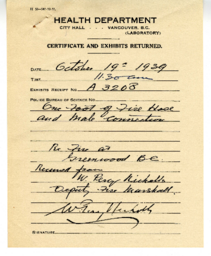 HEALTH DEPARTMENT
CITY HALL . . . VANCOUVER, B.C.
(LABORATORY)
CERTIFICATE AND EXHIBITS RETURNED.
DATE October 19th 1939
TIME 11:30 am
EXHIBITS RECEIPT NO. A 3208
POLICE BUREAU OF SCIENCE FOR
One Part of Fire Hose
and Male connection
Re Fire at
Greenwood B C
Received from
W. Percy Nicholls
Deputy Fire Marshall.
W Percy Nicholls
SIGNATURE